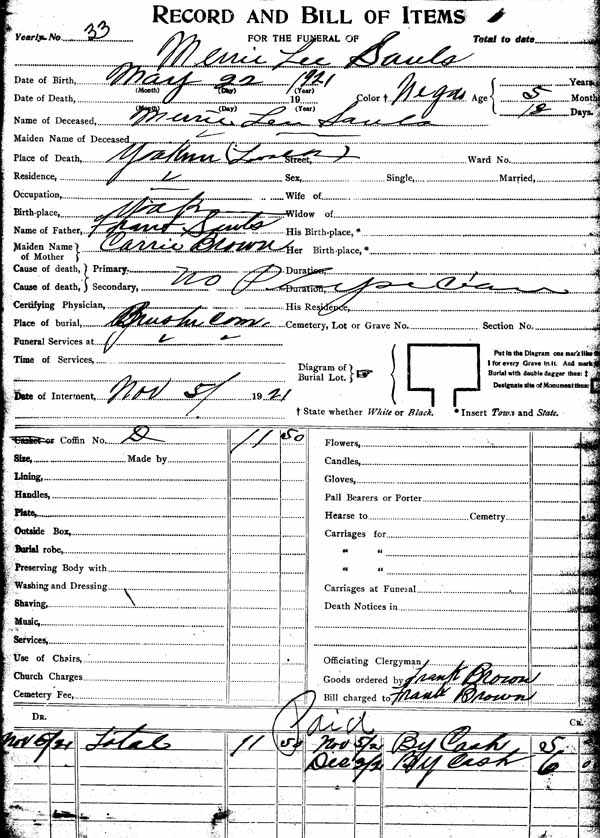 RECORD AND BILL OF ITEMS
Yearly No 33 FOR THE FUNERAL OF Total to date
Merrie Lee Sauls
Date of Birth, May 22 1921
(Month) (Day) (Year)
Date of Death, 19 Color † Negro Age 5 Years Month
(Month) (Day) (Year) 12 Days.
Name of Deceased, Merrie Lee Sauls
Maiden Name of Deceased
Place of Death, Yoakum Street, Ward No.
Residence, " Sex, Single, Married,
Occupation, Wife of
Birth-place, Widow of
Name of Father, Sauls His Birth-place, *
Maiden Name of Mother Carrie Brown Her Birth-place, *
Cause of death, Primary. Duration,
Cause of death, Secondary, No Physician Duration,
Certifying Physician, His Residence,
Place of burial, Brushy Com. Cemetery, Lot or Grave No. Section No.
Funeral Services at " "
Time of Services,
Diagram of Burial Lot. ☞
Put in the Diagram one mark like
I for every Grave in it. And mark
Burial with double dagger thus: ‡
Designate site of Monument thus:
Date of Interment, Nov 5/ 1921
† State whether White or Black. * Insert Town and State.
Casket or Coffin No. 11 50 Flowers,
Size, Made by Candles,
Lining, Gloves,
Handles, Pall Bearers or Porter
Plate, Hearse to Cemetry
Outside Box, Carriages for
Burial robe, " "
Preserving Body with " "
Washing and Dressing Carriages at Funeral
Shaving, Death Notices in
Music,
Services,
Use of Chairs, Officiating Clergyman
Church Charges Goods ordered by Frank Brown
Cemetery Fee, Bill charged to Frank Brown
DR. Paid CR.
Nov 5/21 Total 11 50 Nov 5/21 By Cash 5
Dec By Cash 6